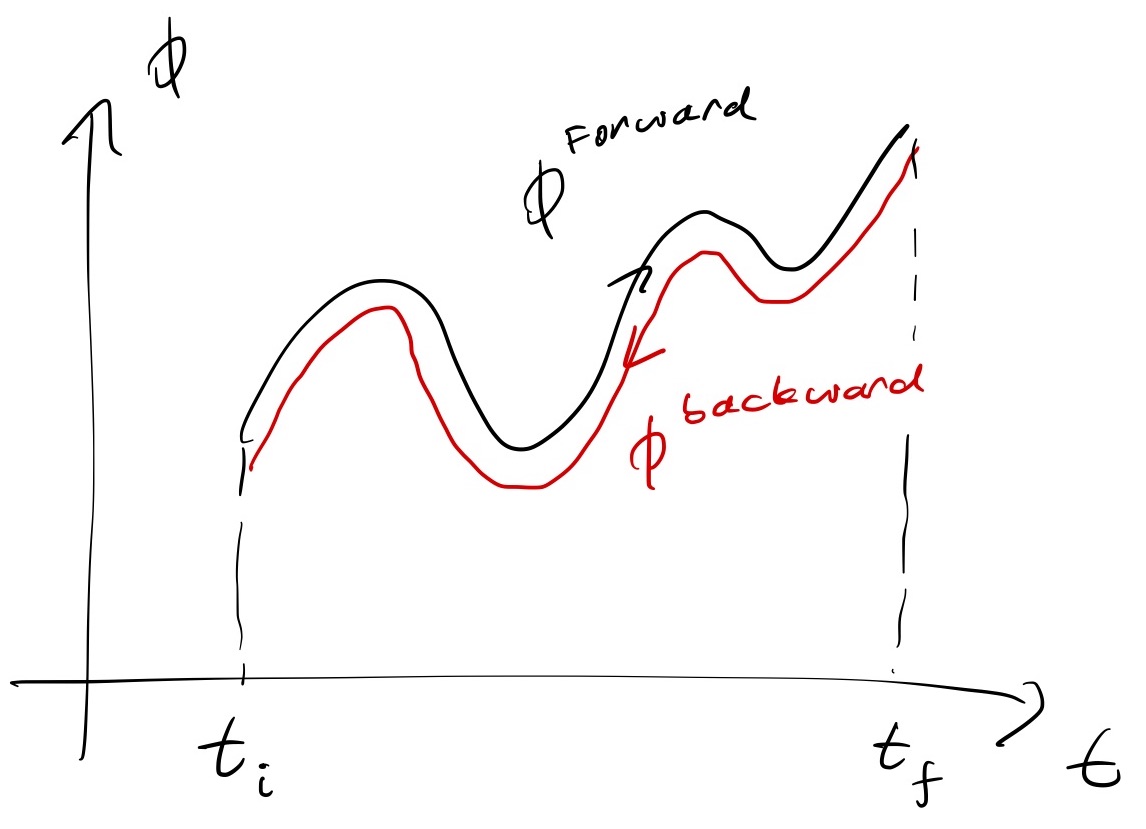 ϕ
ϕ^Forward
ϕ^backward
t_i
t_f
t